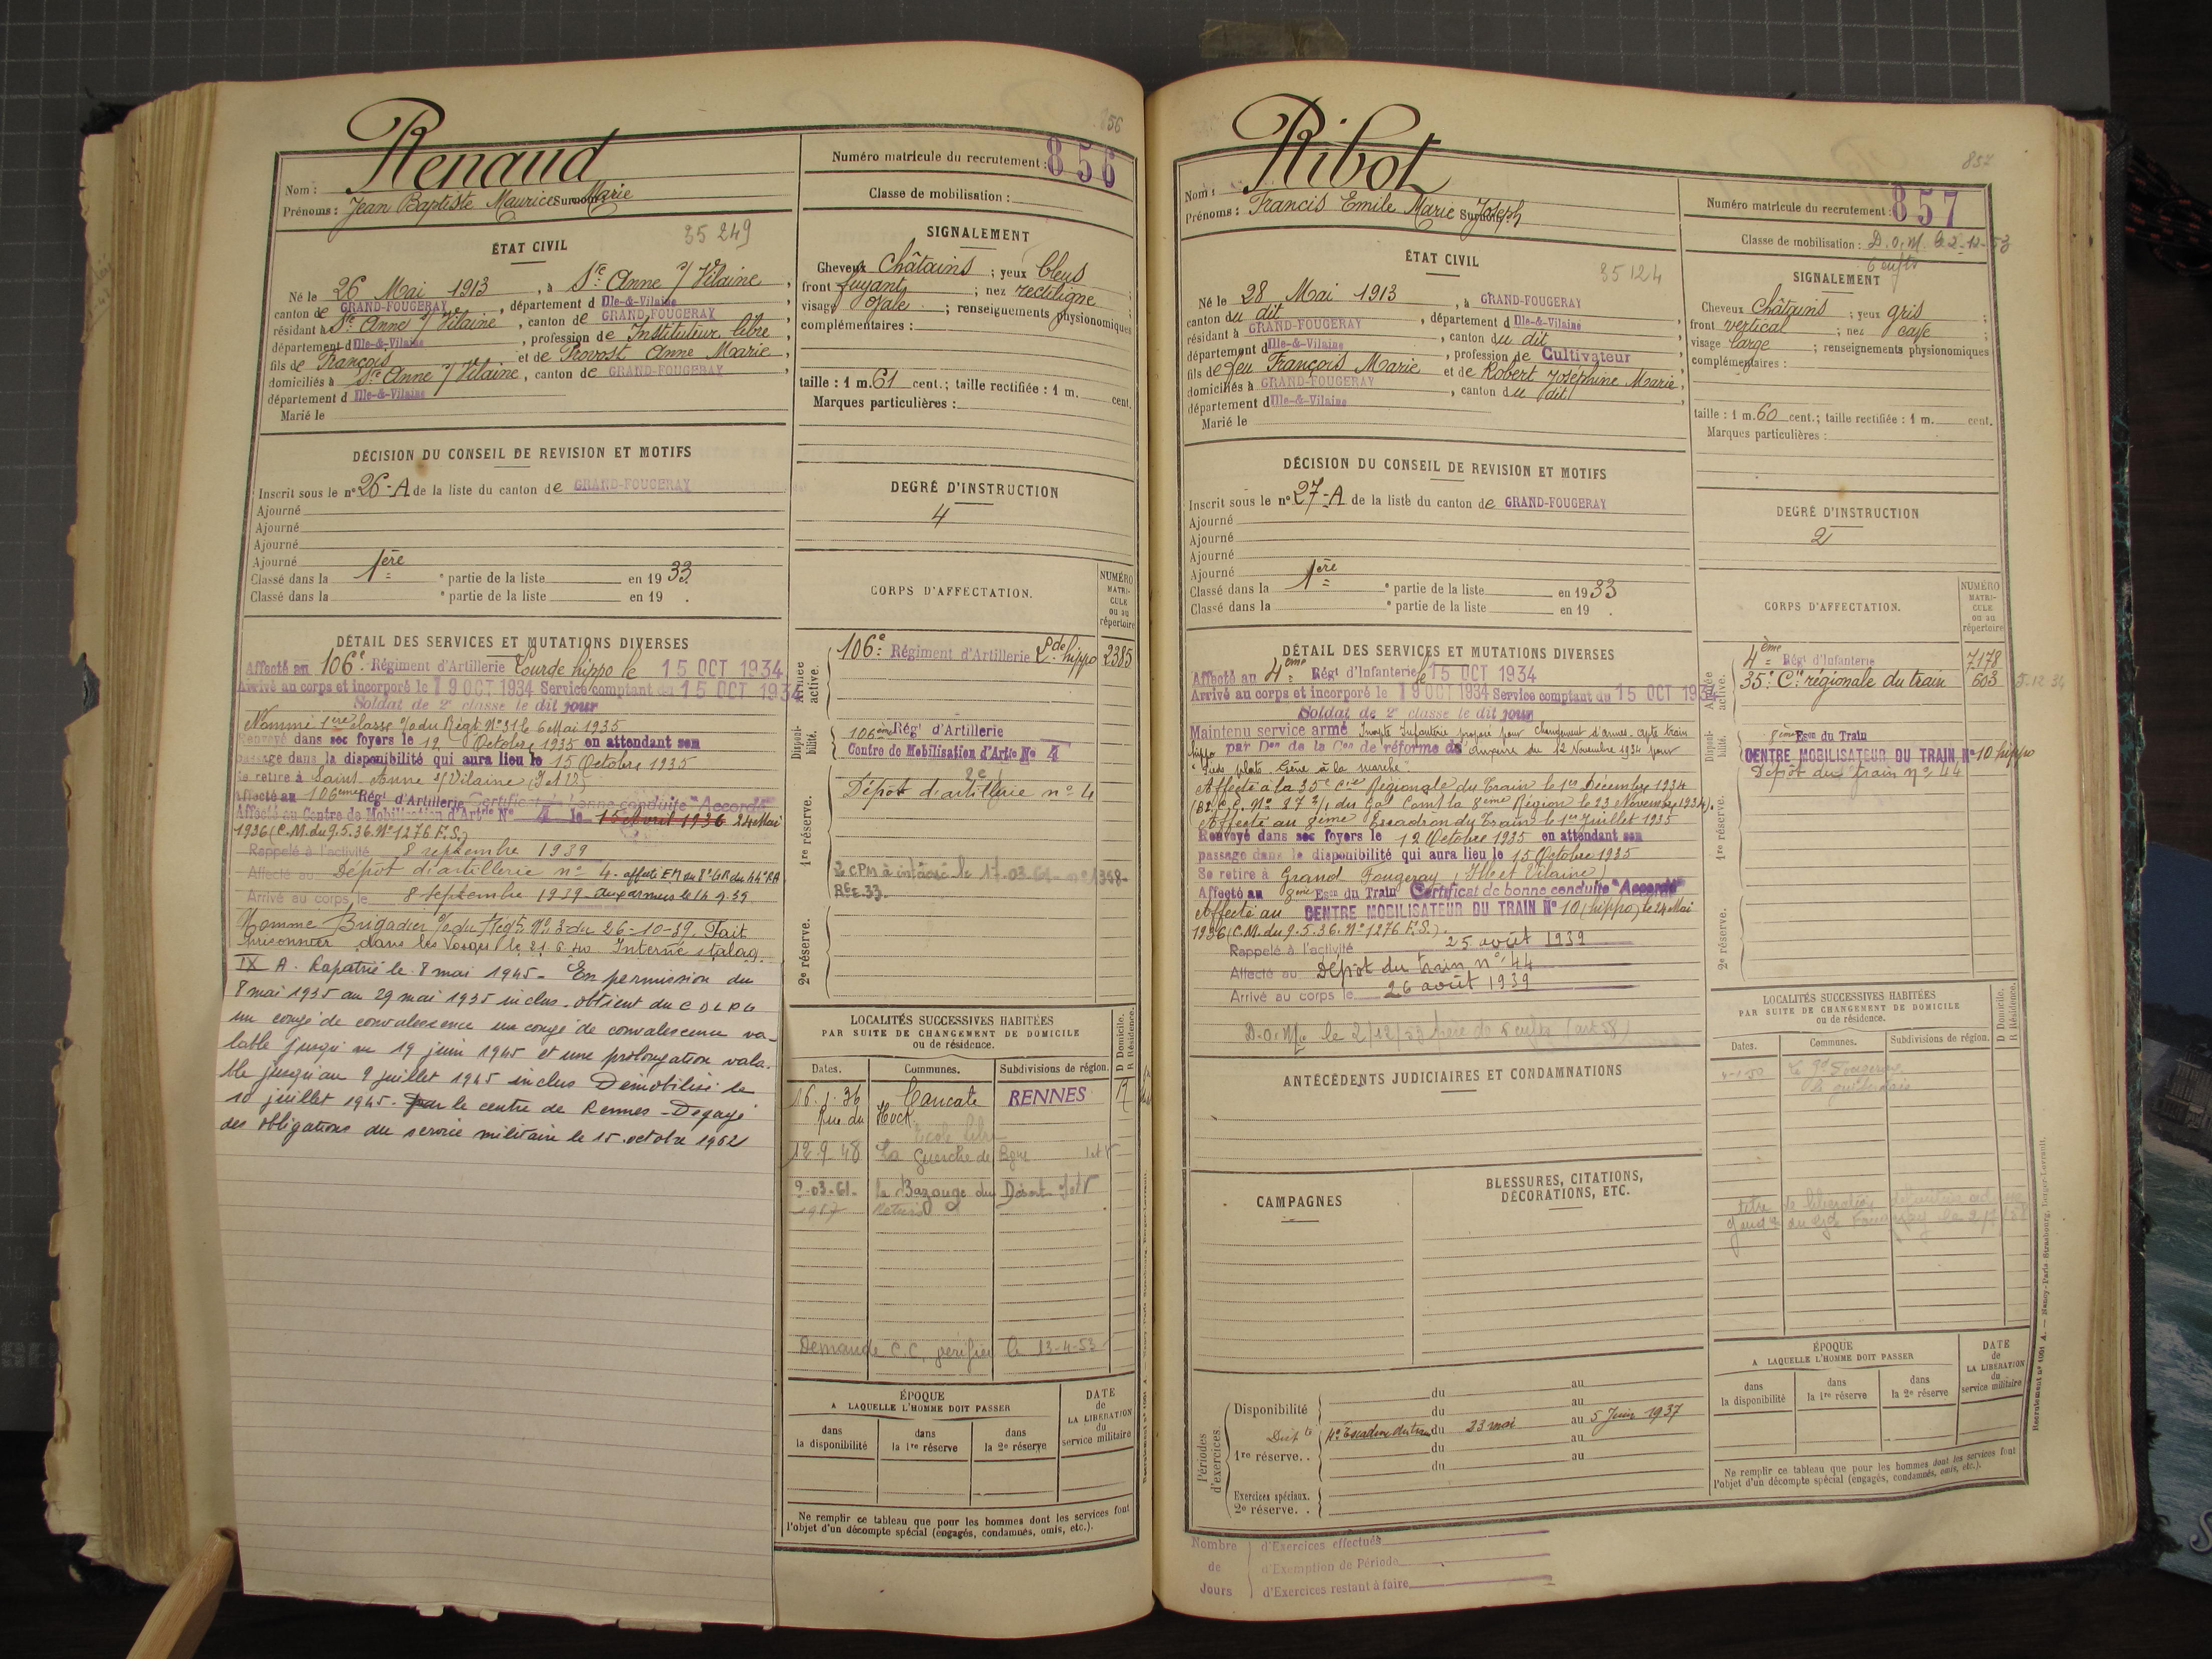 856
Renaud
Nom :
Prénoms : Jean Baptiste Maurice Surnoms : Marie
Numéro matricule du recrutement : 856
Classe de mobilisation :
ÉTAT CIVIL
35 249
Né le 26 Mai 1913, à Ste Anne s/ Vilaine,
canton de GRAND-FOUGERAY, département d Ille-&-Vilaine
résidant à Ste Anne s/ Vilaine, canton de GRAND-FOUGERAY
département d Ille-&-Vilaine, profession de Instituteur libre,
fils de François et de Provost Anne Marie,
domiciliés à Ste Anne s/ Vilaine, canton de GRAND-FOUGERAY
département d Ille-&-Vilaine
Marié le
SIGNALEMENT
Cheveux Châtains ; yeux bleus
front fuyant ; nez rectiligne ;
visage ovale ; renseignements physionomiques
complémentaires :
taille : 1 m. 61 cent. ; taille rectifiée : 1 m. cent.
Marques particulières :
DÉCISION DU CONSEIL DE REVISION ET MOTIFS
Inscrit sous le n° 26-A de la liste du canton de GRAND-FOUGERAY
Ajourné
Ajourné
Ajourné
Ajourné
Classé dans la 1ère e partie de la liste en 1933.
Classé dans la e partie de la liste en 19 .
DEGRÉ D'INSTRUCTION
4
DÉTAIL DES SERVICES ET MUTATIONS DIVERSES
Affecté au 106e Régiment d'Artillerie Lourde hippo le 15 OCT 1934
Arrivé au corps et incorporé le 19 OCT 1934 Service comptant du 15 OCT 1934
Soldat de 2e classe le dit jour
Nommé 1ère classe o/ du Régt N° 31 le 6 Mai 1935
Renvoyé dans ses foyers le 12 Octobre 1935 en attendant son
passage dans la disponibilité qui aura lieu le 15 Octobre 1935
Se retire à Saint-Anne s/ Vilaine (I et V)
Affecté au 106ème Régt d'Artillerie Certificat de bonne conduite "Accordé"
Affecté au Centre de Mobilisation d'Artie N° 4 le 15 Avril 1936 24 Mai
1936 (C.M. du 9.5.36. N° 1276 F.S.)
Rappelé à l'activité 8 septembre 1939
Affecté au Dépôt d'artillerie n° 4 - affecté EM du 8e GR du 44e RA
Arrivé au corps le 8 septembre 1939 - aux armées le 14 9.39
Nommé Brigadier o/ du Régt N° 3 du 26-10-39. Fait
prisonnier dans les Vosges le 21.6.40 Interné stalag
IX A. Rapatrié le 8 mai 1945 - En permission du
8 mai 1935 au 29 mai 1935 inclus. obtient du C D L P G
un congé de convalescence un congé de convalescence va-
lable jusqu'au 19 juin 1945 et une prolongation vala-
ble jusqu'au 9 juillet 1945 inclus Démobilisé le
10 juillet 1945 - par le centre de Rennes - Dégagé
des obligations du service militaire le 15 octobre 1962
CORPS D'AFFECTATION.
NUMÉRO MATRICULE ou au répertoire
Armée active.
106e Régiment d'Artillerie Lde hippo 2385
Disponibilité.
106ème Régt d'Artillerie
Centre de Mobilisation d'Artie N° 4
1re réserve.
Dépôt d'artillerie n° 4
2e réserve.
LOCALITÉS SUCCESSIVES HABITÉES
PAR SUITE DE CHANGEMENT DE DOMICILE
ou de résidence.
D Domicile. R Résidence.
Dates. Communes. Subdivisions de région.
16.1.36 Cancale RENNES R
Rue du Hock
Ecole libre
12.9.48 La Guerche de Bgne I et V
9-03-61 la Bazouge du Désert I et V
Demande C.C. vérifiée le 13-4-53
ÉPOQUE
A LAQUELLE L'HOMME DOIT PASSER
DATE de LA LIBÉRATION du service militaire
dans la disponibilité
dans la 1re réserve
dans la 2e réserve
Ne remplir ce tableau que pour les hommes dont les services font
l'objet d'un décompte spécial (engagés, condamnés, omis, etc.).
857
Ribot
Nom :
Prénoms : Francis Emile Marie Surnoms : Joseph
Numéro matricule du recrutement : 857
Classe de mobilisation : D.O.M. le 2-12-53
6 enfts
ÉTAT CIVIL
35124
Né le 28 Mai 1913, à GRAND-FOUGERAY
canton du dit, département d Ille-&-Vilaine
résidant à GRAND-FOUGERAY, canton du dit
département d Ille-&-Vilaine, profession de Cultivateur
fils de feu François Marie et de Robert Joséphine Marie,
domiciliés à GRAND-FOUGERAY, canton du dit
département d Ille-&-Vilaine
Marié le
SIGNALEMENT
Cheveux Châtains ; yeux gris ;
front vertical ; nez cave
visage large ; renseignements physionomiques
complémentaires :
taille : 1 m. 60 cent. ; taille rectifiée : 1 m. cent.
Marques particulières :
DÉCISION DU CONSEIL DE REVISION ET MOTIFS
Inscrit sous le n° 27-A de la liste du canton de GRAND-FOUGERAY
Ajourné
Ajourné
Ajourné
Ajourné
Classé dans la 1ère e partie de la liste en 1933
Classé dans la e partie de la liste en 19 .
DEGRÉ D'INSTRUCTION
2
DÉTAIL DES SERVICES ET MUTATIONS DIVERSES
Affecté au 4ème Régt d'Infanterie le 15 OCT 1934
Arrivé au corps et incorporé le 19 OCT 1934 Service comptant du 15 OCT 1934
Soldat de 2e classe le dit jour
Maintenu service armé Inapte Infanterie proposé pour changement d'armes. Apte train
hippo par Don de la Con de réforme d'Auxerre du 12 Novembre 1934 pour
"Pieds plats. Gêne à la marche"
Affecté à la 35e Cie Régionale du Train le 1er Décembre 1934
(B2.C.C. N° 37 3/1 du Gal Comt la 8ème Région le 23 Novembre 1934).
Affecté au 8ème Escadron du Train le 1er Juillet 1935
Renvoyé dans ses foyers le 12 Octobre 1935 en attendant son
passage dans la disponibilité qui aura lieu le 15 Octobre 1935
Se retire à Grand Fougeray (Ille et Vilaine)
Affecté au 8ème Eson du Train Certificat de bonne conduite "Accordé"
Affecté au CENTRE MOBILISATEUR DU TRAIN N° 10 (hippo) le 24 Mai
1936 (C.M. du 9.5.36. N° 1276 F.S.).
Rappelé à l'activité 25 août 1939
Affecté au Dépôt du train n° 44
Arrivé au corps le 26 août 1939
D.O.M. le 2/12/53 père de 6 enfts (art 58)
ANTÉCÉDENTS JUDICIAIRES ET CONDAMNATIONS
CAMPAGNES
BLESSURES, CITATIONS, DÉCORATIONS, ETC.
CORPS D'AFFECTATION.
NUMÉRO MATRICULE ou au répertoire
Armée active.
4ème Régt d'Infanterie 7178
35e Cie régionale du train 603 5.12.34
Disponibilité.
8ème Eson du Train
CENTRE MOBILISATEUR DU TRAIN N° 10 hippo
Dépôt du train n° 44
1re réserve.
2e réserve.
LOCALITÉS SUCCESSIVES HABITÉES
PAR SUITE DE CHANGEMENT DE DOMICILE
ou de résidence.
D Domicile. R Résidence.
Dates. Communes. Subdivisions de région.
Le Gd Fougeray
Périodes d'exercices.
Disponibilité du au
du au
Dispté 4e Escadron du train du 23 mai au 5 Juin 1937
1re réserve. . du au
du au
Exercices spéciaux.
2e réserve. .
Nombre de Jours
d'Exercices effectués
d'Exemption de Période
d'Exercices restant à faire
ÉPOQUE
A LAQUELLE L'HOMME DOIT PASSER
DATE de LA LIBÉRATION du service militaire
dans la disponibilité
dans la 1re réserve
dans la 2e réserve
Ne remplir ce tableau que pour les hommes dont les services font
l'objet d'un décompte spécial (engagés, condamnés, omis, etc.).
Recrutement n° 1091 A. — Nancy-Paris-Strasbourg, Berger-Levrault.